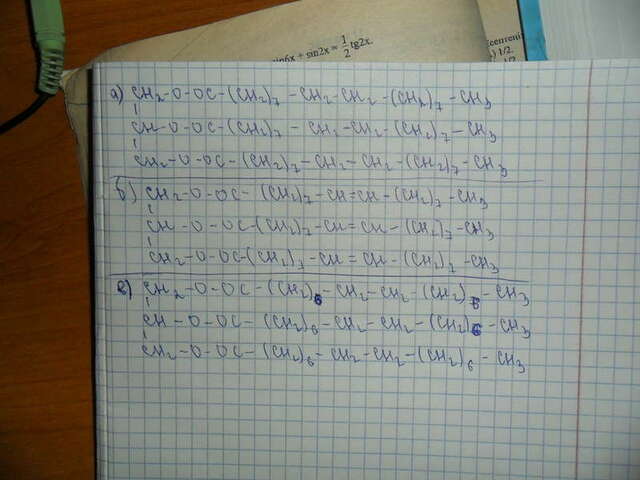 sin6x + sin2x = 1/2 tg2x.
1/2.
а) CH₂-O-OC-(CH₂)₇-CH₂-CH₂-(CH₂)₇-CH₃
CH-O-OC-(CH₂)₇-CH₂-CH₂-(CH₂)₇-CH₃
CH₂-O-OC-(CH₂)₇-CH₂-CH₂-(CH₂)₇-CH₃
б) CH₂-O-OC-(CH₂)₇-CH=CH-(CH₂)₇-CH₃
CH-O-OC-(CH₂)₇-CH=CH-(CH₂)₇-CH₃
CH₂-O-OC-(CH₂)₇-CH=CH-(CH₂)₇-CH₃
в) CH₂-O-OC-(CH₂)₆-CH₂-CH₂-(CH₂)₆-CH₃
CH-O-OC-(CH₂)₆-CH₂-CH₂-(CH₂)₆-CH₃
CH₂-O-OC-(CH₂)₆-CH₂-CH₂-(CH₂)₆-CH₃